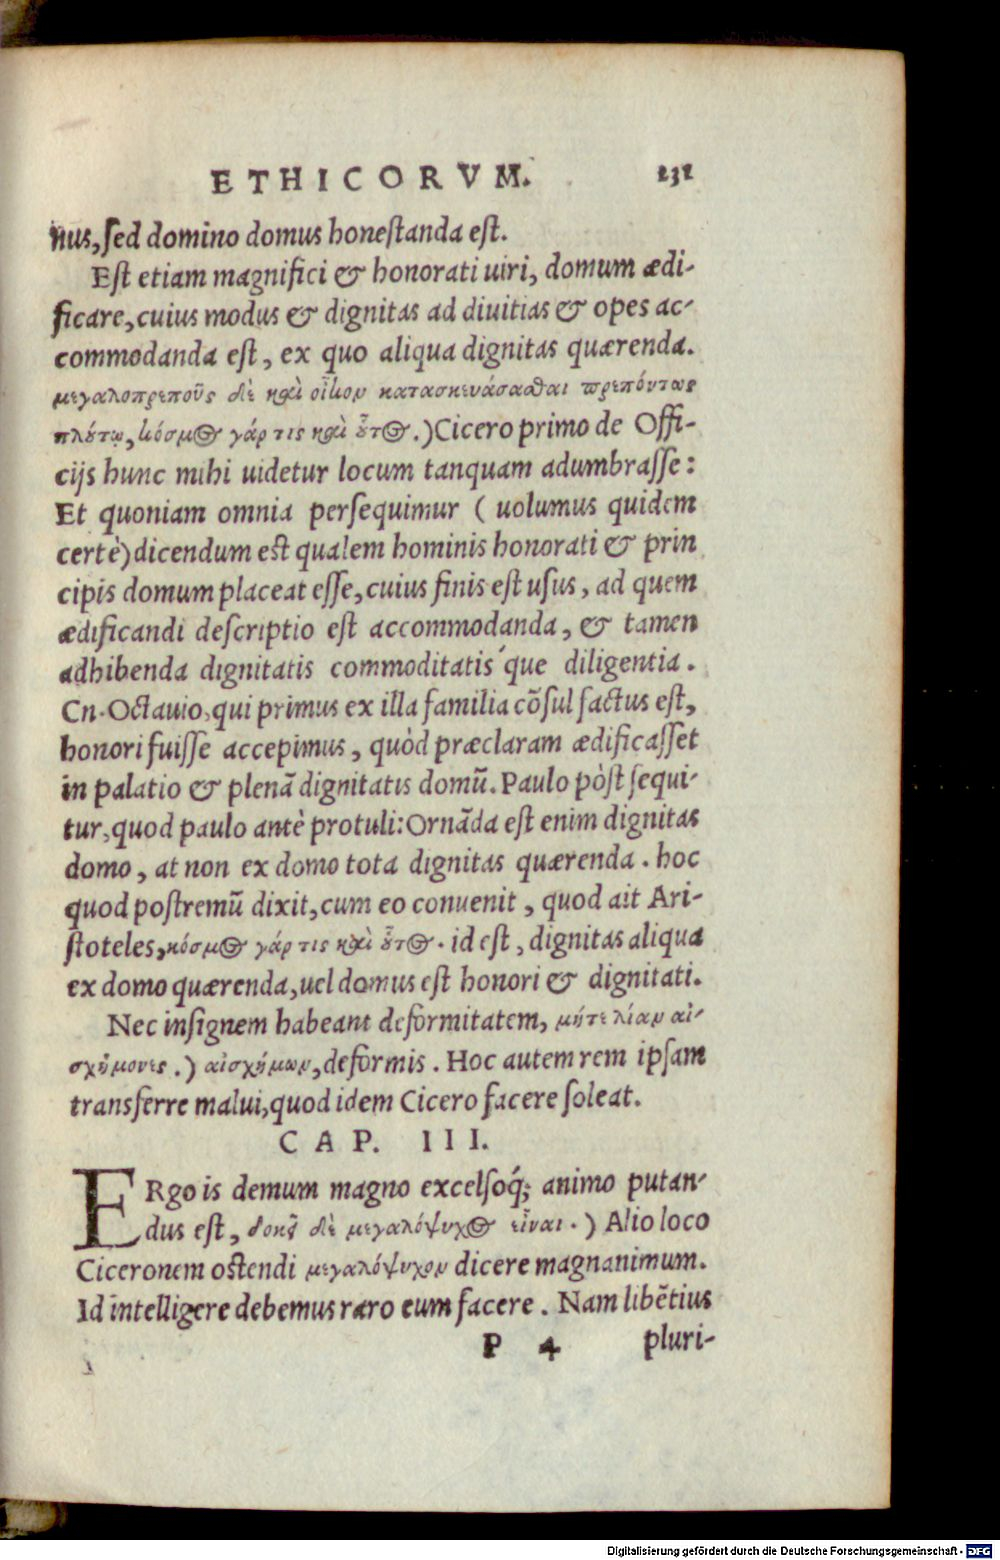 ETHICORVM. 231
nus, sed domino domus honestanda est.
Est etiam magnifici & honorati uiri, domum ædi-
ficare, cuius modus & dignitas ad diuitias & opes ac-
commodanda est, ex quo aliqua dignitas quærenda.
μεγαλοπρεποῦς δὲ καὶ οἶκον κατασκευάσασθαι πρεπόντως
πλούτῳ, κόσμος γάρ τις καὶ οὗτος.) Cicero primo de Offi-
cijs hunc mihi uidetur locum tanquam adumbrasse:
Et quoniam omnia persequimur ( uolumus quidem
certè) dicendum est qualem hominis honorati & prin
cipis domum placeat esse, cuius finis est usus, ad quem
ædificandi descriptio est accommodanda, & tamen
adhibenda dignitatis commoditatis´que diligentia.
Cn. Octauio, qui primus ex illa familia cõsul factus est,
honori fuisse accepimus, quòd præclaram ædificasset
in palatio & plenã dignitatis domũ. Paulo pòst sequi-
tur, quod paulo antè protuli: Ornãda est enim dignitas
domo, at non ex domo tota dignitas quærenda. hoc
quod postremũ dixit, cum eo conuenit, quod ait Ari-
stoteles, κόσμος γάρ τις καὶ οὗτος. id est, dignitas aliqua
ex domo quærenda, uel domus est honori & dignitati.
Nec insignem habeant deformitatem, μήτε λίαν αἰ-
σχήμονες.) αἰσχήμων, deformis. Hoc autem rem ipsam
transferre malui, quod idem Cicero facere soleat.
CAP. III.
ERgo is demum magno excelsoq́; animo putan-
dus est, δοκεῖ δὲ μεγαλόψυχος εἶναι.) Alio loco
Ciceronem ostendi μεγαλόψυχον dicere magnanimum.
Id intelligere debemus raro eum facere. Nam libẽtius
P 4 pluri-
Digitalisierung gefördert durch die Deutsche Forschungsgemeinschaft - DFG